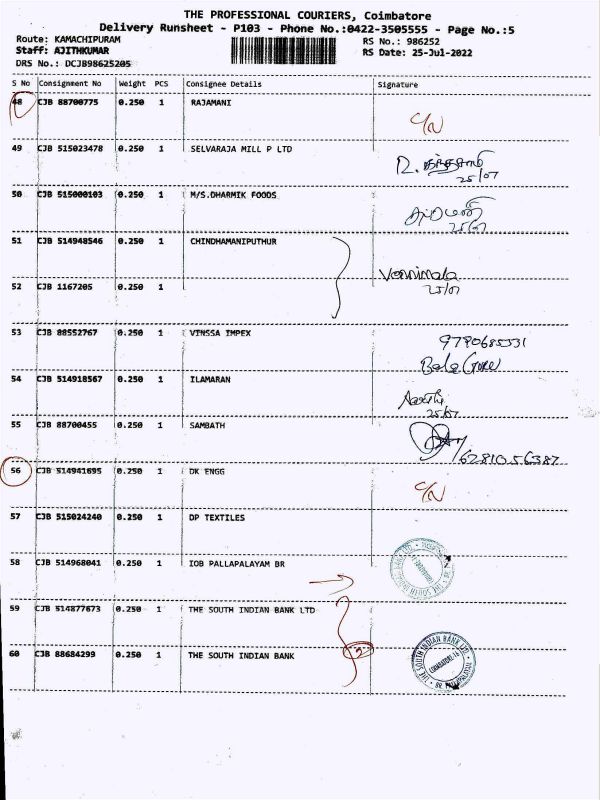 THE PROFESSIONAL COURIERS, Coimbatore
Delivery Runsheet - P103 - Phone No.:0422-3505555 - Page No.:5
Route: KAMACHIPURAM RS No.: 986252
Staff: AJITHKUMAR RS Date: 25-Jul-2022
DRS No.: DCJB98625205
S No Consignment No Weight PCS Consignee Details Signature
48 CJB 88700775 0.250 1 RAJAMANI
C/N
49 CJB 515023478 0.250 1 SELVARAJA MILL P LTD
25/07
50 CJB 515000103 0.250 1 M/S.DHARMIK FOODS
25/07
51 CJB 514948546 0.250 1 CHINDHAMANIPUTHUR
Vennimala
52 CJB 1167205 0.250 1 25/07
53 CJB 88552767 0.250 1 VINSSA IMPEX 9790685331
54 CJB 514918567 0.250 1 ILAMARAN
25/07
55 CJB 88700455 0.250 1 SAMBATH
6281056387
56 CJB 514941695 0.250 1 DK ENGG
C/N
57 CJB 515024240 0.250 1 DP TEXTILES
58 CJB 514968041 0.250 1 IOB PALLAPALAYAM BR
59 CJB 514877673 0.250 1 THE SOUTH INDIAN BANK LTD
60 CJB 88684299 0.250 1 THE SOUTH INDIAN BANK 2
THE SOUTH INDIAN BANK LTD.